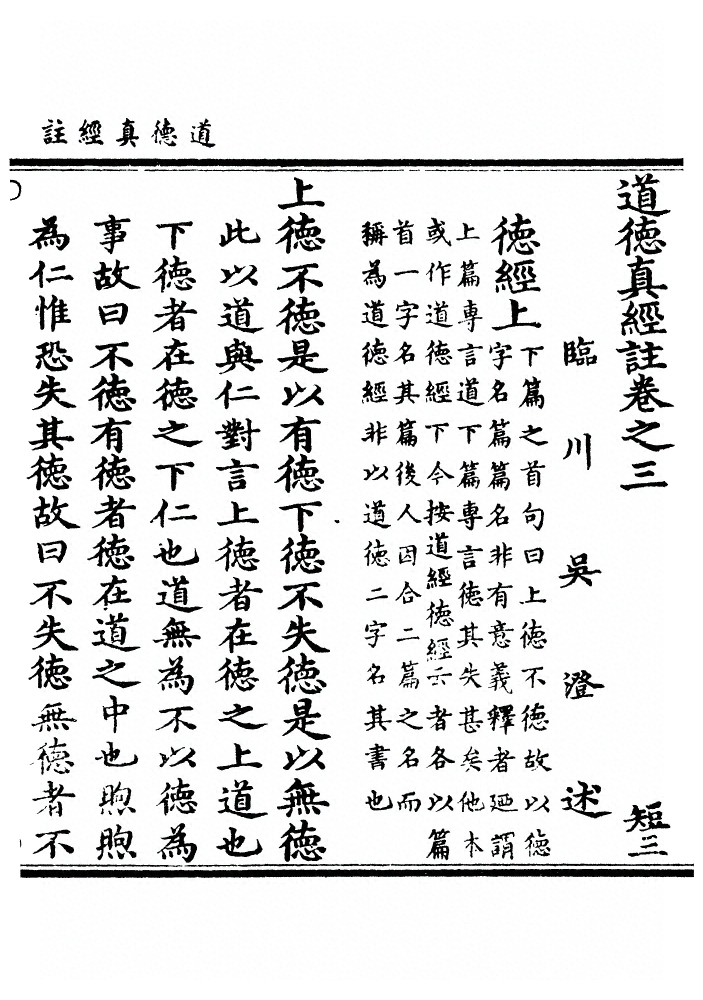 道德真經註
道德真經註卷之三
短三
臨川吳澄述
德經上
下篇之首句曰上德不德故以德
字名篇篇名非有意義釋者廼謂
上篇專言道下篇專言德其失甚矣他本
或作道德經下今按道經德經云者各以篇
首一字名其篇後人因合二篇之名而
稱為道德經非以道德二字名其書也
上德不德是以有德下德不失德是以無德
此以道與仁對言上德者在德之上道也
下德者在德之下仁也道無為不以德為
事故曰不德有德者德在道之中也煦煦
為仁惟恐失其德故曰不失德無德者不